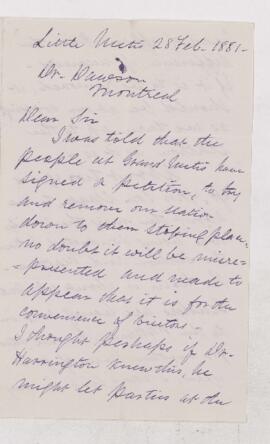 Little Metis 28 Feb. 1881 -
Dr. Dawson
Montreal
Dear Sir
I was told that the
People at Grand Metis have
signed a Petition, to try
and remove our station
down to them stoping place
no doubt it will be misre=
=presented and made to
appear that it is for the
convenience of visitors -
I thought Perhaps if Dr.
Harrington knew this, he
might let Parties at the